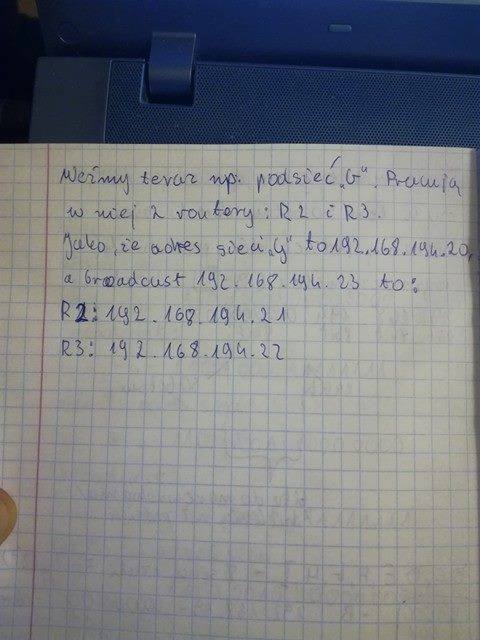 Weźmy teraz np. podsieć „G". Pracują
w niej 2 routery: R2 i R3.
Jako, że adres sieci „G" to 192.168.194.20,
a broadcast 192.168.194.23 to:
R2: 192.168.194.21
R3: 192.168.194.22